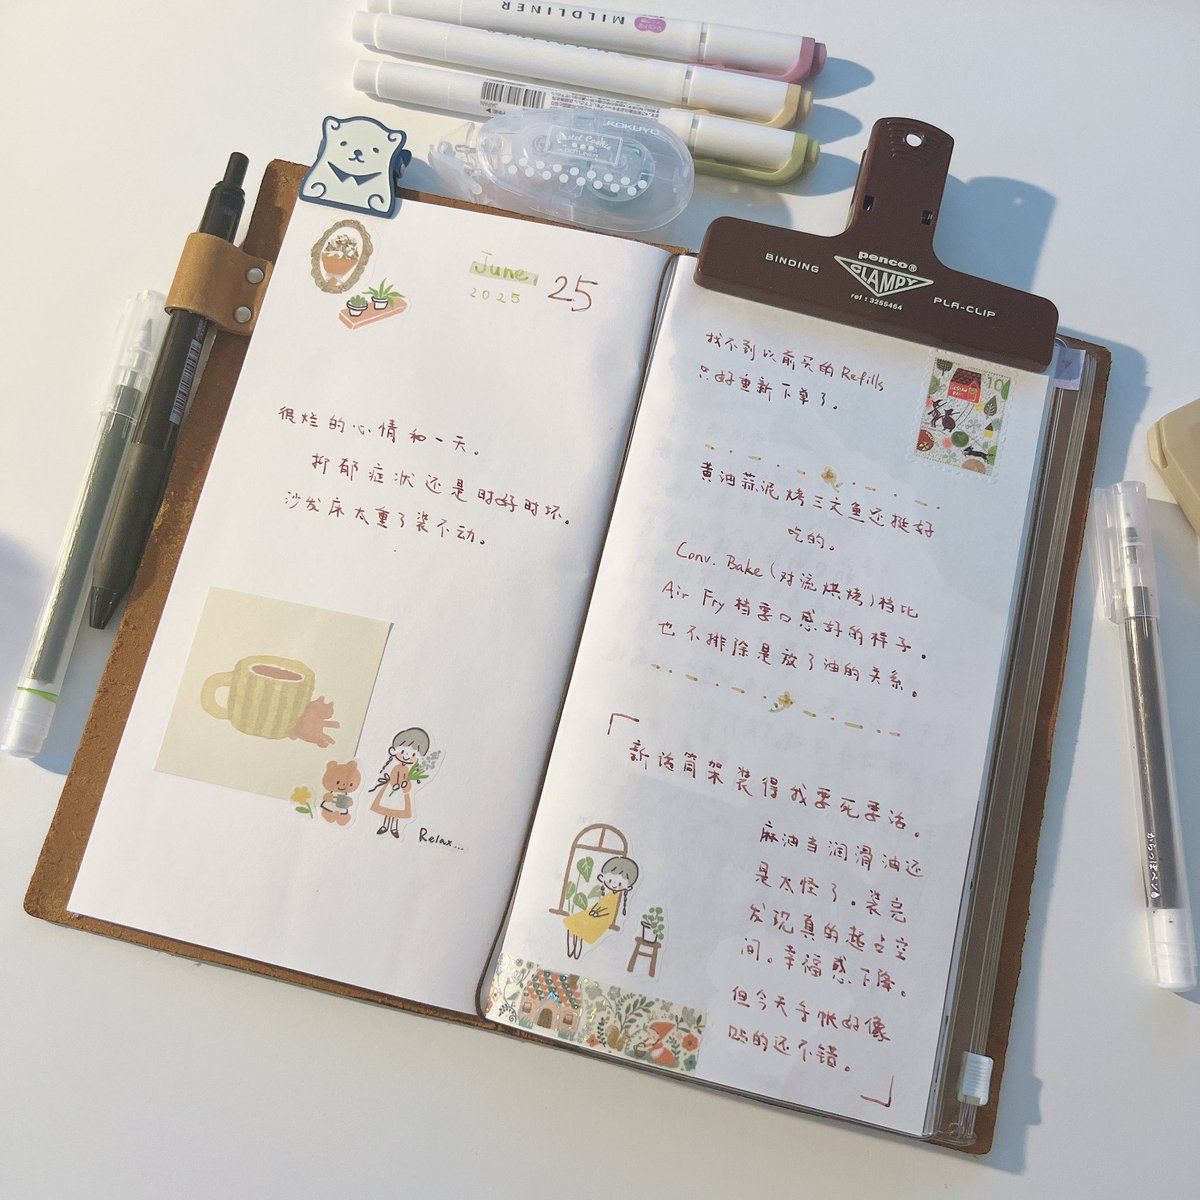 MILDLINER
KOKUYO
penco®
BINDING
CLAMPY
PLA-CLIP
ref : 3255464
June.
2025
25
很烂的心情和一天。
抑郁症状还是时好时坏。
沙发床太重了装不动。
Relax...
找不到以前买的Refills
只好重新下单了。
10
黄油蒜泥烤三文鱼还挺好
吃的。
Conv. Bake(对流烘烤)档比
Air Fry档要口感好的样子。
也不排除是放了油的关系。
「
新话筒架装得我要死要活。
麻油当润滑油还
是太怪了。装完
发现真的超占空
间。幸福感下降。
但今天手帐好像
贴的还不错。
」
からっぽペン